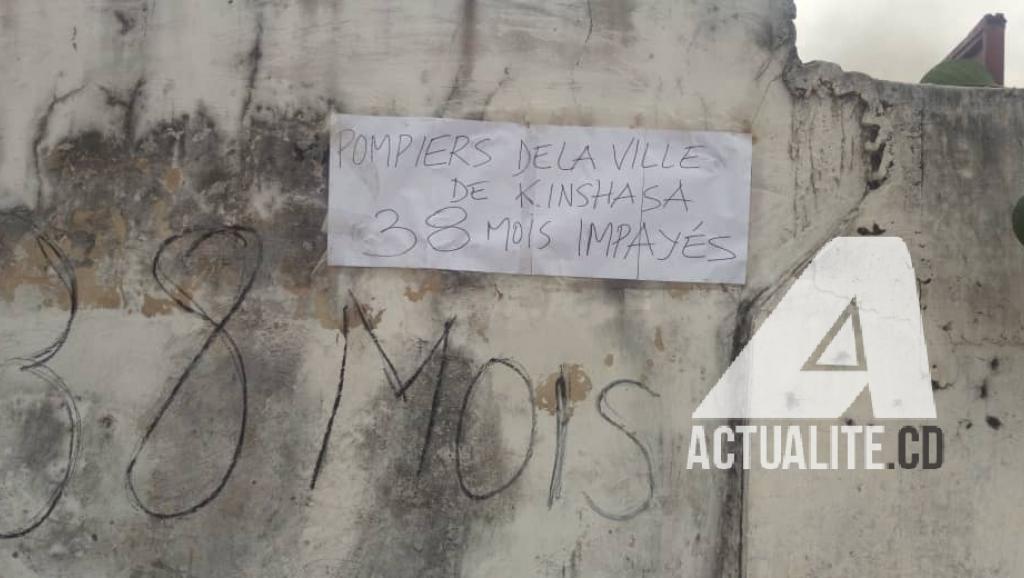 POMPIERS DE LA VILLE
DE KINSHASA
38 MOIS IMPAYÉS
38 MOIS
ACTUALITE.CD